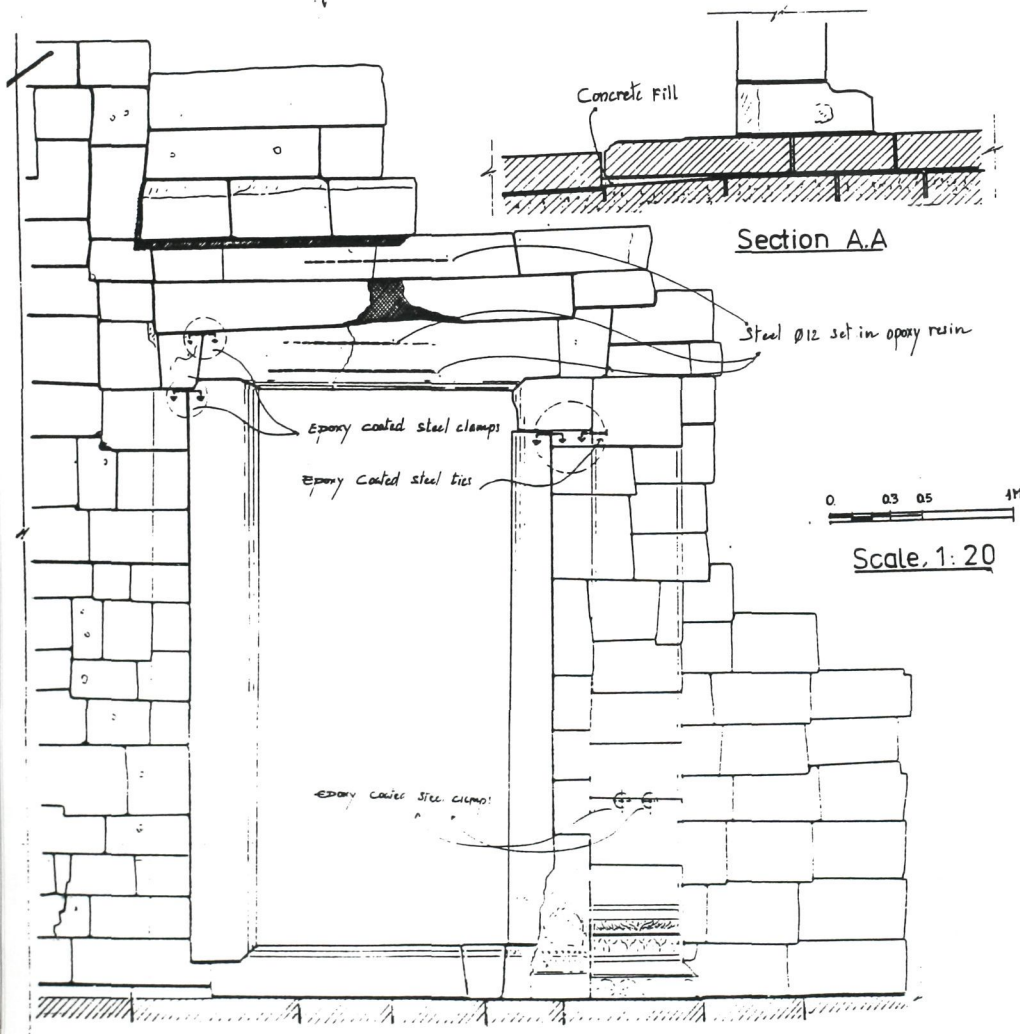 Concrete Fill
Section A.A
Steel Ø12 set in epoxy resin
Epoxy coated steel clamps
Epoxy Coated steel ties
0. 0.3 0.5 1M
Scale, 1:20
Epoxy coated steel clamps